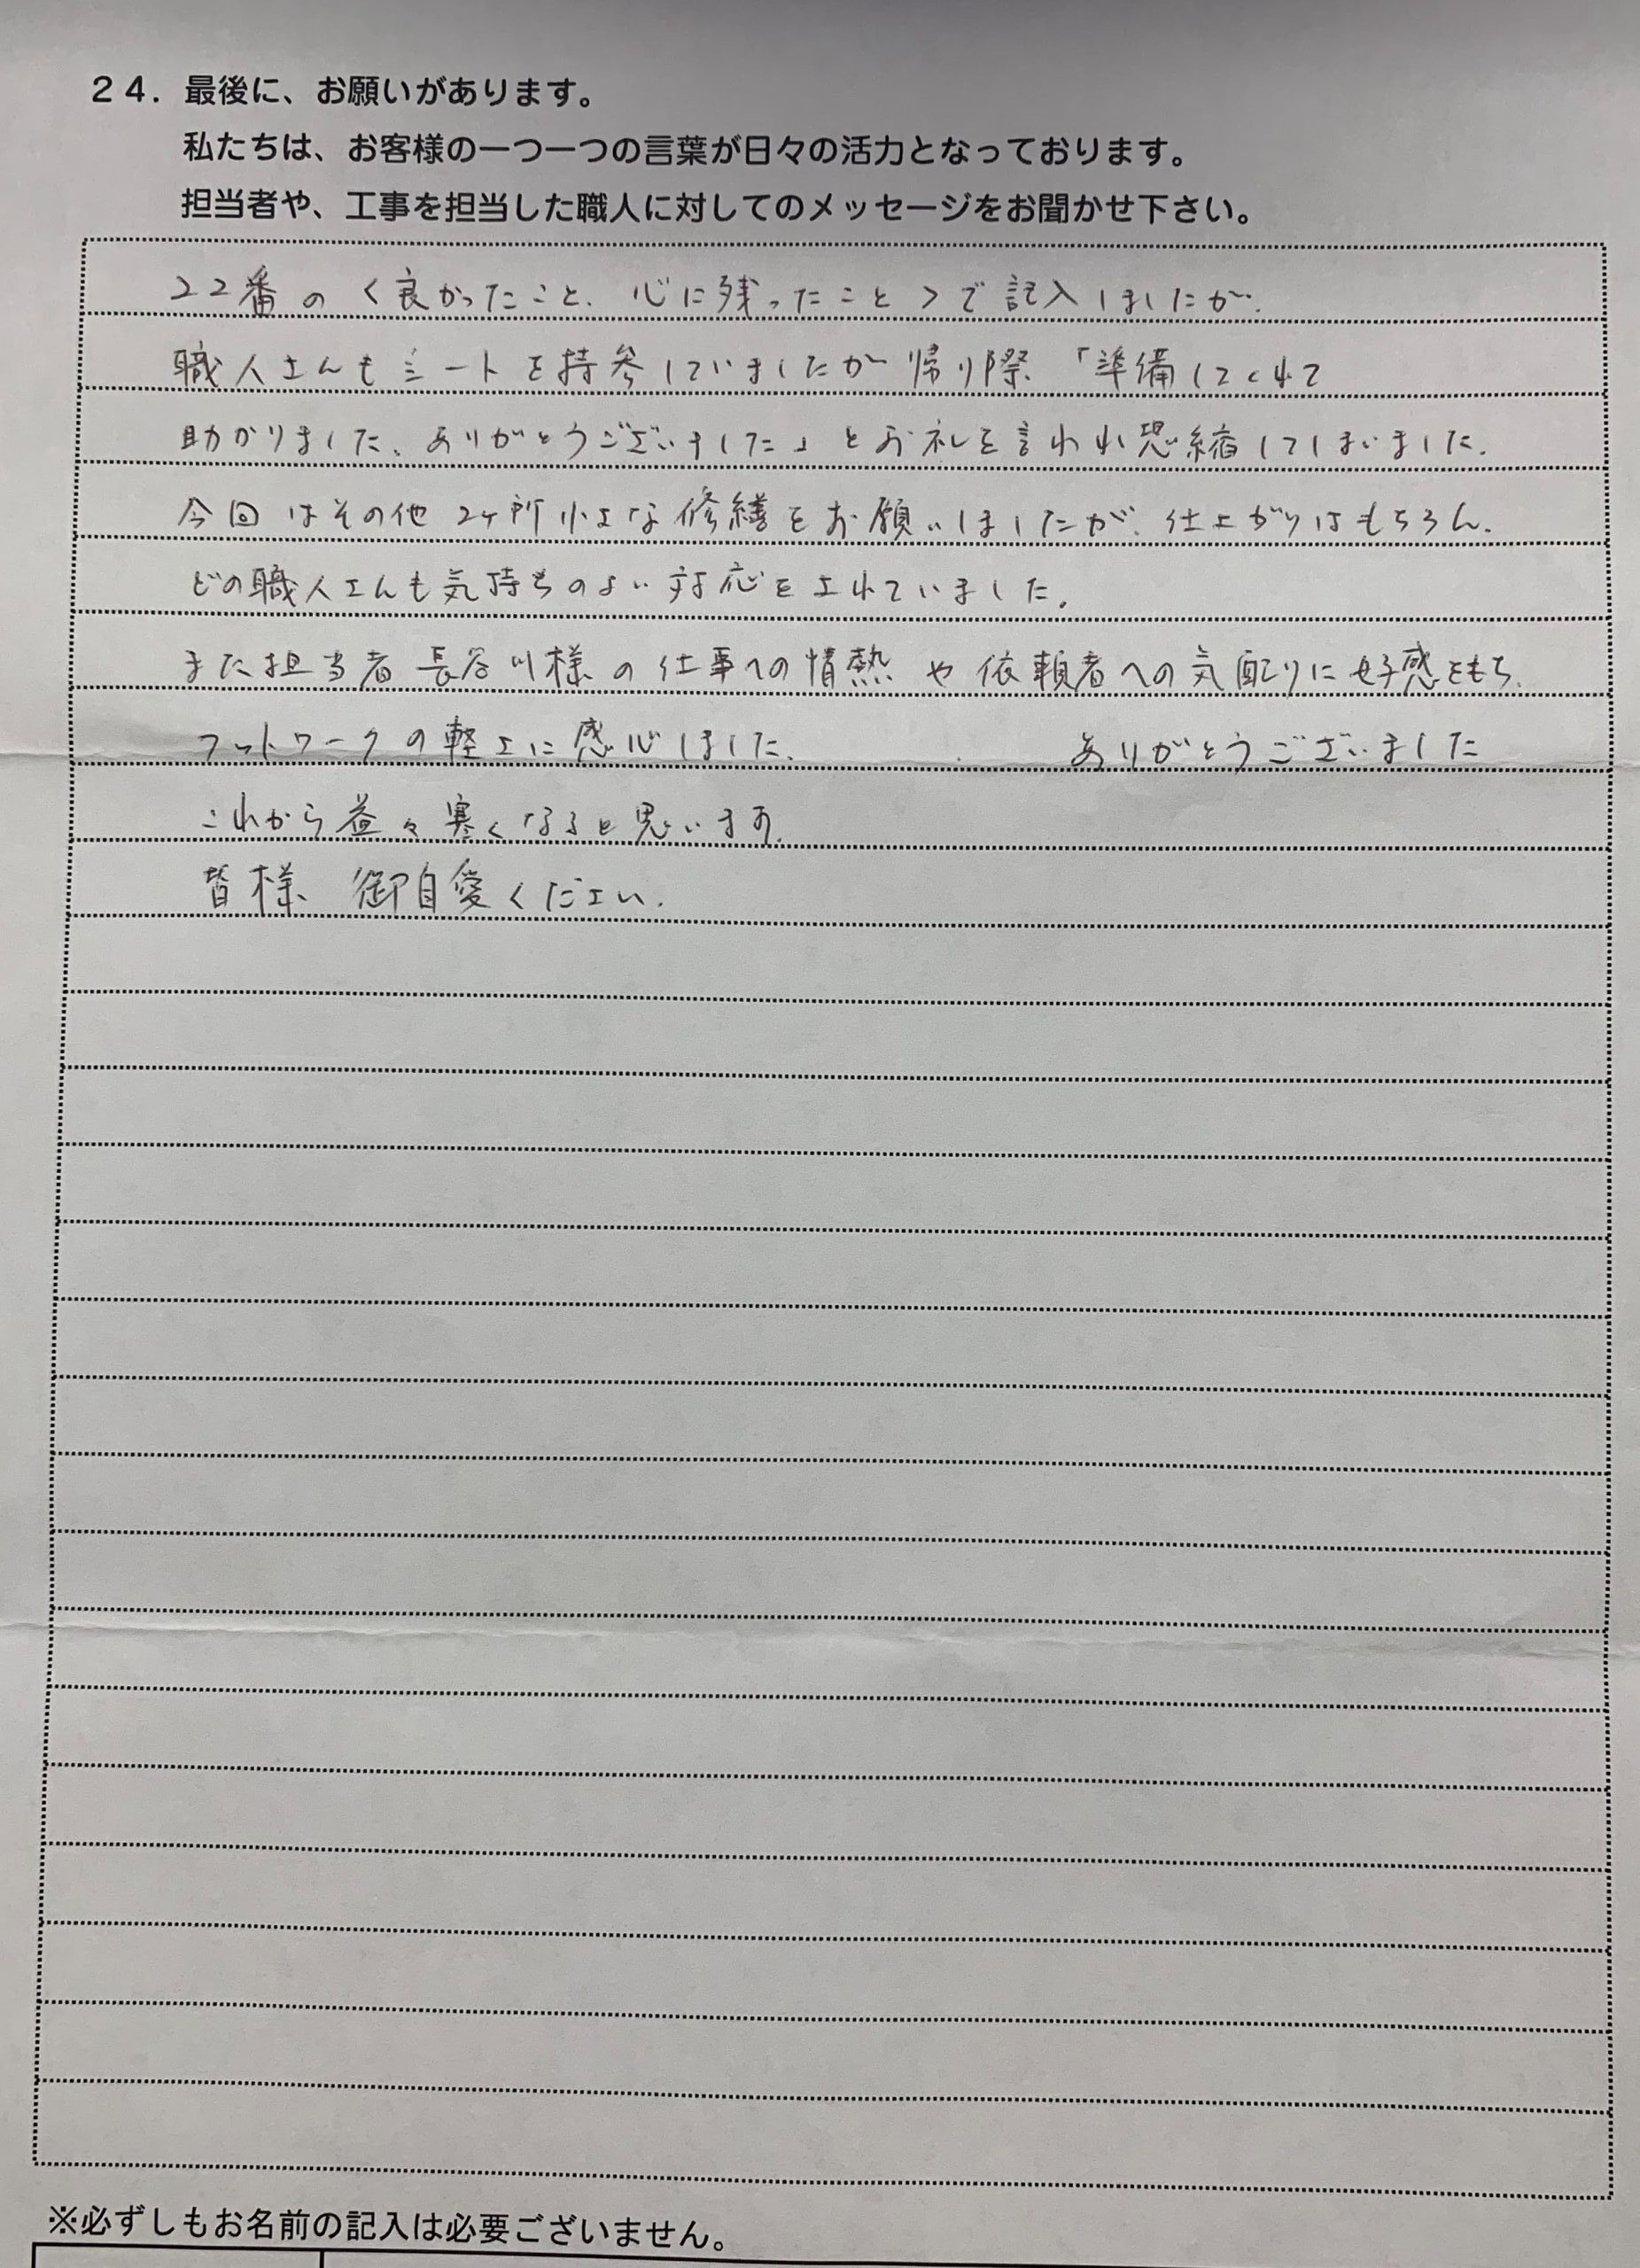 24. 最後に、お願いがあります。
私たちは、お客様の一つ一つの言葉が日々の活力となっております。
担当者や、工事を担当した職人に対してのメッセージをお聞かせ下さい。
22番の〈良かったこと、心に残ったこと〉で記入しましたが、
職人さんもシートを持参していましたが帰り際、「準備してくれて
助かりました、ありがとうございました」とお礼を言われ恐縮してしまいました。
今回はその他2ヶ所小さな修繕をお願いしましたが、仕上がりはもちろん、
どの職人さんも気持ちのよい対応をされていました。
また担当者 長谷川様の仕事への情熱や依頼者への気配りに好感をもち、
フットワークの軽さに感心しました、 ありがとうございました
これから益々寒くなると思います。
皆様、御自愛ください。
※必ずしもお名前の記入は必要ございません。